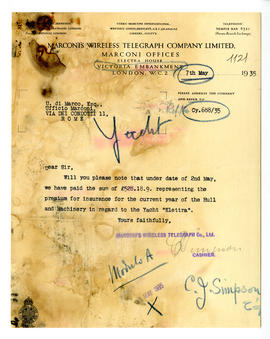 TELEPHONE
TEMPLE BAR 4321
MARCONI'S WIRELESS TELEGRAPH COMPANY, LIMITED.
MARCONI OFFICES
ELECTRA HOUSE
VICTORIA EMBANKMENT
LONDON, W.C.2
7th May 1935
1121
PLEASE ADDRESS THE COMPANY
AND REFER TO
Cy.688/35
U. di Marco, Esq.,
Ufficio Marconi,
VIA DEI CONDOTTI 11,
ROME
Yacht
Dear Sir,
Will you please note that under date of 2nd May,
we have paid the sum of £528.18.9. representing the
premium for insurance for the current year of the Hull
and Machinery in regard to the Yacht "Elettra".
Yours faithfully,
MARCONI'S WIRELESS TELEGRAPH Co., Ltd.
Simpson
CASHIER.
Modulo A
1935
C. J. Simpson